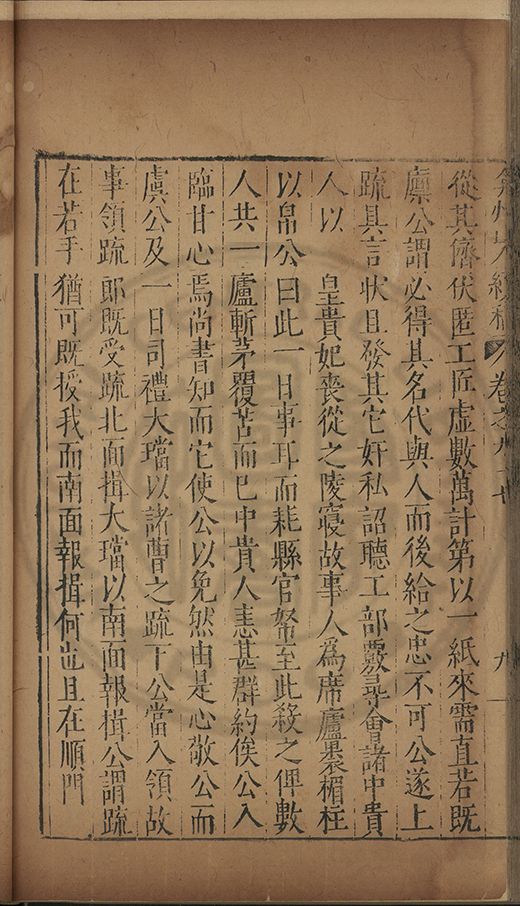 弇州人續稿 卷之九十七 九
從其儕伏匿工匠虛數萬計第以一紙來需直若既
廩公謂必得其名代與人而後給之忠不可公遂上
疏具言狀且發其它奸私詔聽工部覈尋會諸中貴
人以 皇貴妃喪從之陵寢故事人為席廬裹楣柱
以帛公曰此一日事耳而耗縣官帑至此殺之俾數
人共一廬斬茅覆苫而巳中貴人恚甚群約俟公入
臨甘心焉尚書知而它使公以免然由是心敬公而
虞公及一日司禮大璫以諸曹之疏下公當入領故
事領疏郎既受疏北面揖大璫以南面報揖公謂疏
在若手猶可既授我而南面報揖何也且在順門